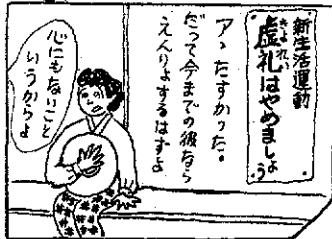 新生活運動
虚礼はやめましょう
きょれい
アヽたすかった。
だって今までの彼なら
えんりょするはずよ
心にもないこと
いうからよ